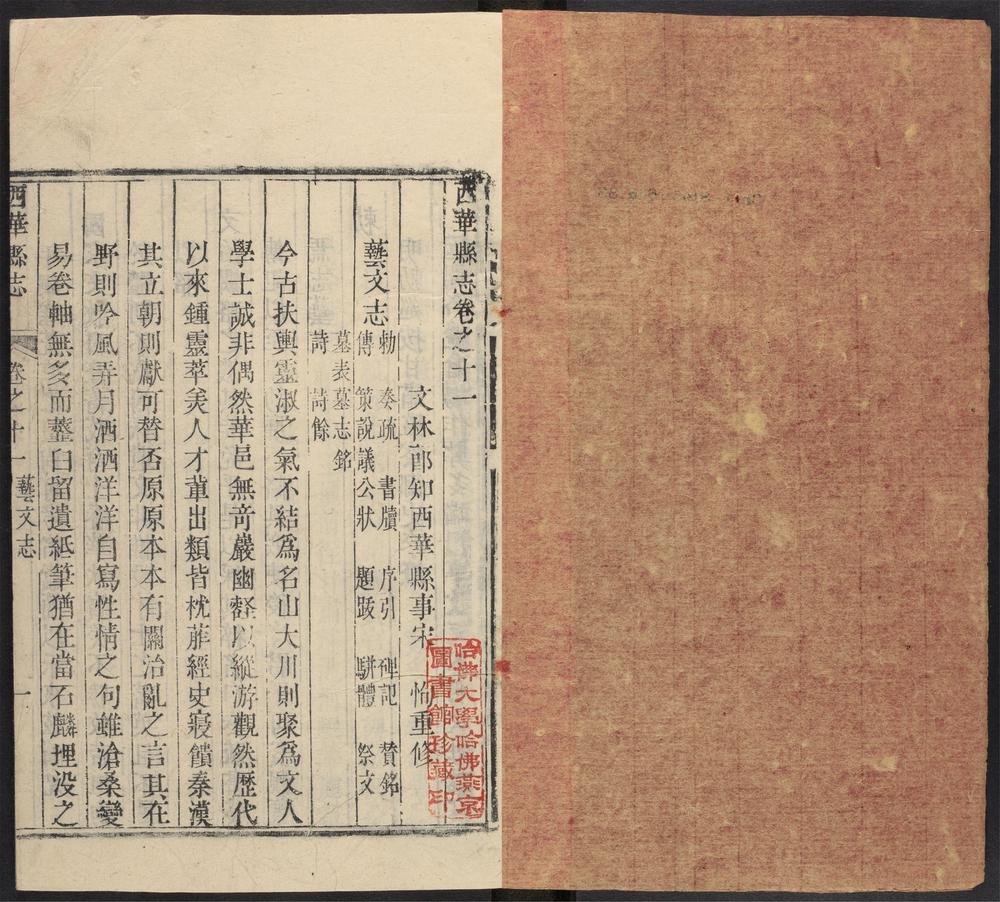 西華縣志卷之十一
文林郎知西華縣事宋恂重修
藝文志
勅 奏疏 書牘 序引 碑記 贊銘
傳 策說議公狀 題跋 駢體 祭文
墓表墓志銘
詩 詩餘
今古扶輿靈淑之氣不結爲名山大川則聚爲文人
學士誠非偶然華邑無竒巖幽壑以縱游觀然歷代
以來鍾靈萃美人才軰出類皆枕葄經史寢饋秦漢
其立朝則獻可替否原原本本有關治亂之言其在
野則吟風弄月洒洒洋洋自寫性情之句雖滄桑變
易卷軸無多而虀臼留遺紙筆猶在當石麟埋没之
西華縣志 卷之十一 藝文志 一
哈佛大學哈佛燕京
圖書館珍藏印